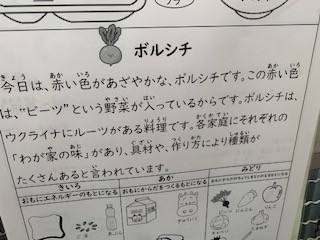 ボルシチ
今日は、赤い色があざやかな、ボルシチです。この赤い色
は、“ビーツ”という野菜が入っているからです。ボルシチは、
ウクライナにルーツがある料理です。各家庭にそれぞれの
「わが家の味」があり、具材や、作り方により種類が
たくさんあると言われています。
きいろ あか みどり
おもにエネルギーのもとになる おもにからだをつくるもとになる